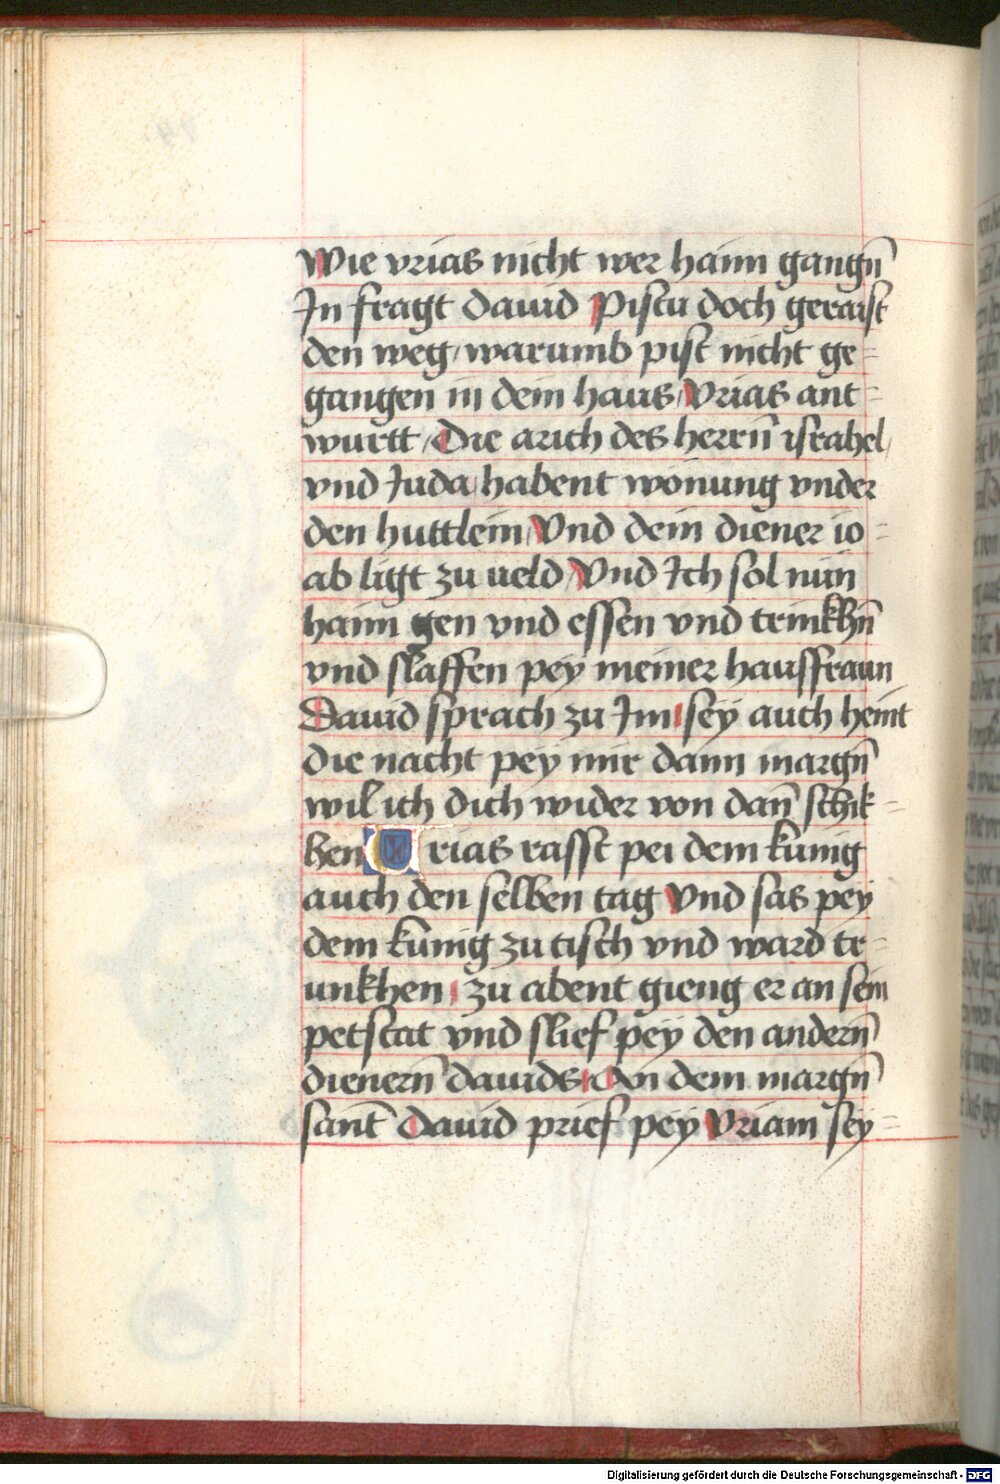 Wie vrias nicht wer haim gangn̄
In fragt dauid Pistu doch geraist
den weg / warumb pist nicht ge=
gangen in dem haus / Vrias ant=
wurtt / Die arich des herren̄ israhel /
vnd Juda habent wonung vnder
den huttlein / Vnd dein diener io=
ab ligt zu ueld / Vnd Ich sol nun
haim gen vnd essen vnd trinkhn̄
vnd slaffen pey meiner haussfraun
Dauid sprach zu Im / sey auch heint
die nacht pey mir dann margn̄
wil ich dich wider von dan̄ schik=
hen Vrias rasst pei dem kunig
auch den selben tag Vnd sas pey
dem kunig zu tisch vnd ward tr=
unkhen / zu abent gieng er an sein
petstat vnd slief pey den andern̄
dienern̄ dauids / An dem margn̄
sant̄ Dauid prief pey Vriam sey=
Digitalisierung gefördert durch die Deutsche Forschungsgemeinschaft - DFG